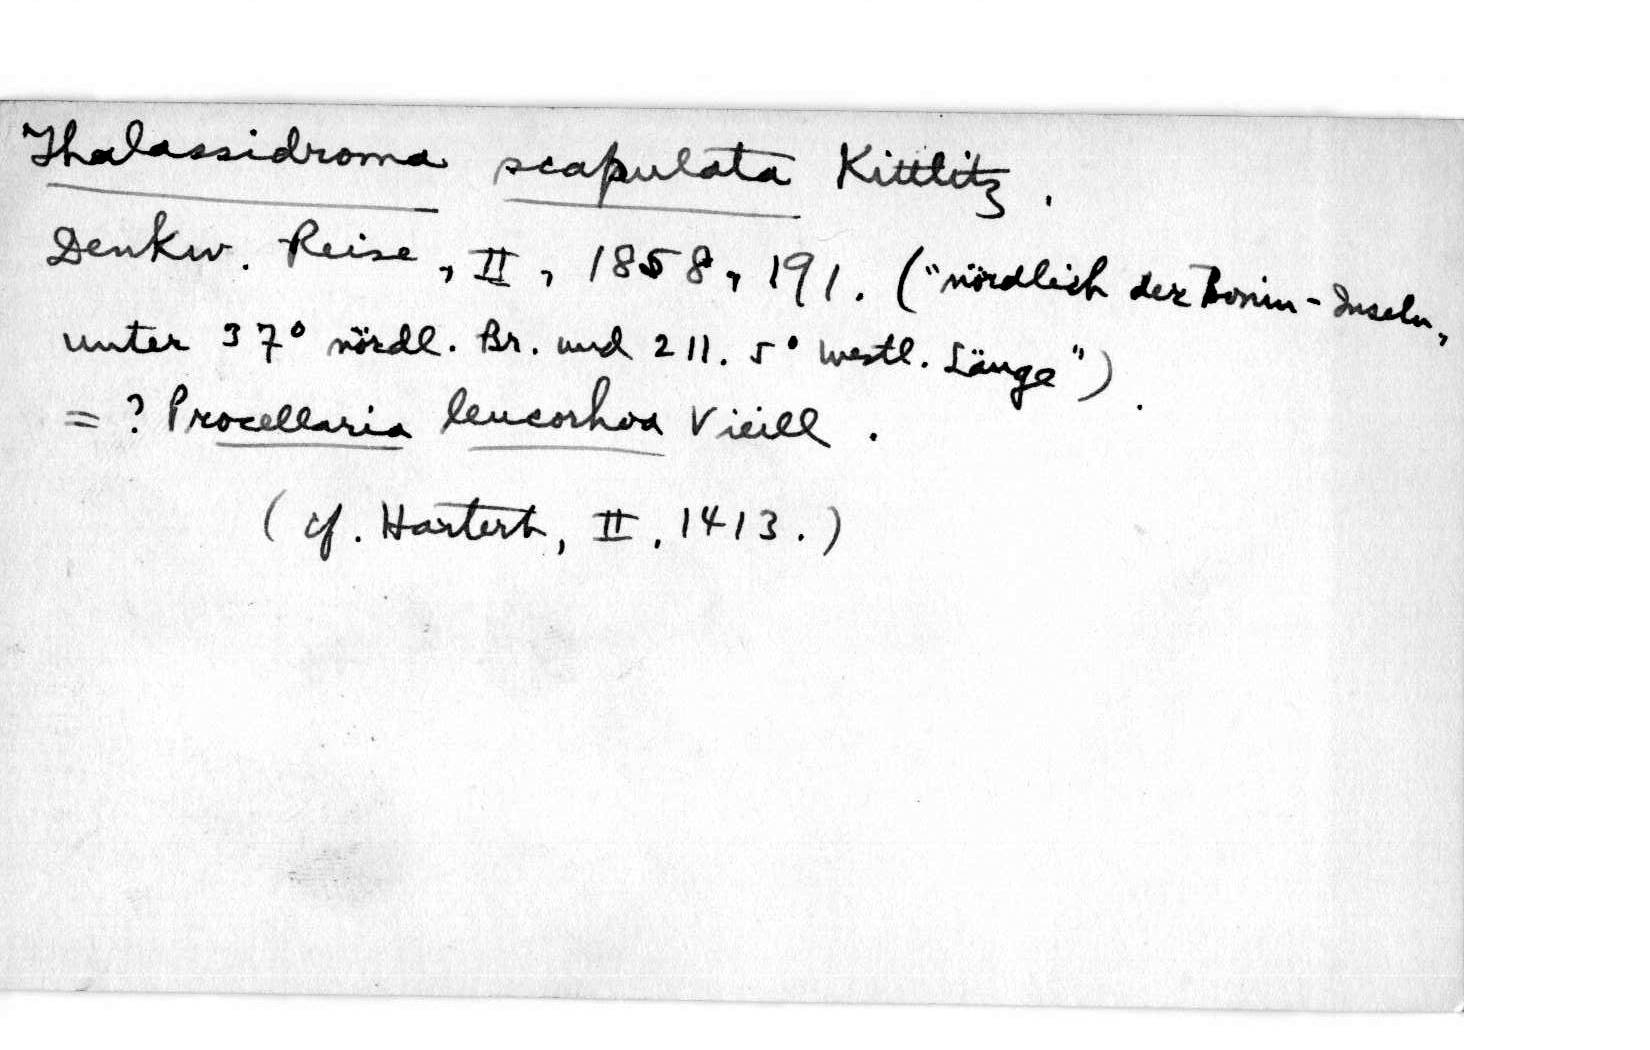 Thalassidroma scapulata Kittlitz.
Denkw. Reise, II, 1858, 191. ("nördlich der Bonin-Inseln,
unter 37° nördl. Br. und 211.5° westl. Länge").
= ? Procellaria leucorhoa Vieill.
(cf. Hartert, II, 1413.)